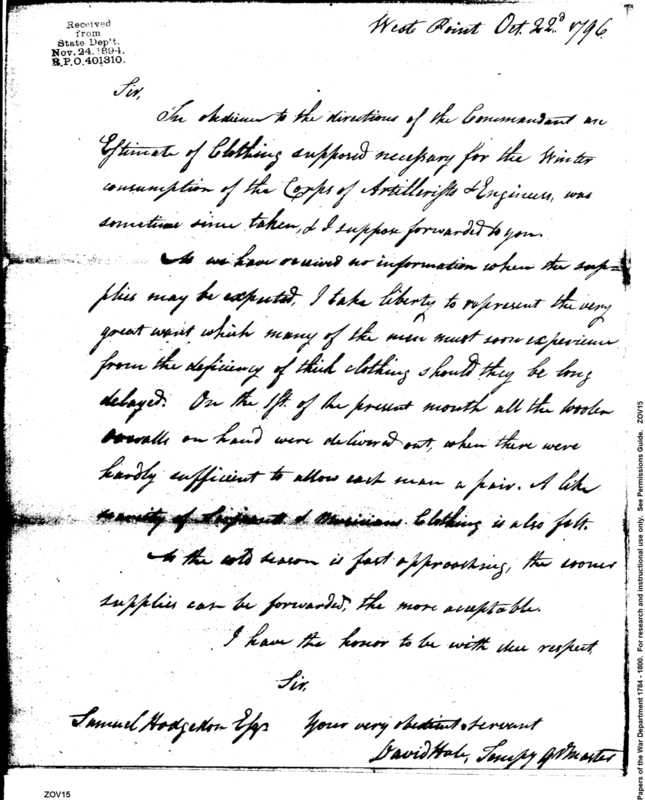 Received
from
State Dep't.
Nov. 24. 1894.
R.P.O. 401310.
West Point Oct. 22d 1796
Sir,
In obedience to the directions of the Commandant an
Estimate of Clothing supposed necessary for the Winter
consumption of the Corps of Artillerists & Engineers, was
sometime since taken, & I suppose forwarded to you.
As we have received no information when the sup=
plies may be expected, I take liberty to represent the very
great want which many of the men must soon experience
from the deficiency of thick clothing should they be long
delayed. On the 1st. of the present month all the woolen
overalls on hand were delivered out, when there were
hardly sufficient to allow each man a pair. A like
scarcity of Sergeants & Musicians Clothing is also felt.
As the cold season is fast approaching, the sooner
supplies can be forwarded, the more acceptable.
I have the honor to be with due respect,
Sir,
Samuel Hodgdon Esqr Your very obedient servant
David Hale, Qr Master
ZOV15
Papers of the War Department 1784 - 1800. For research and instructional use only. See Permissions Guide. ZOV15